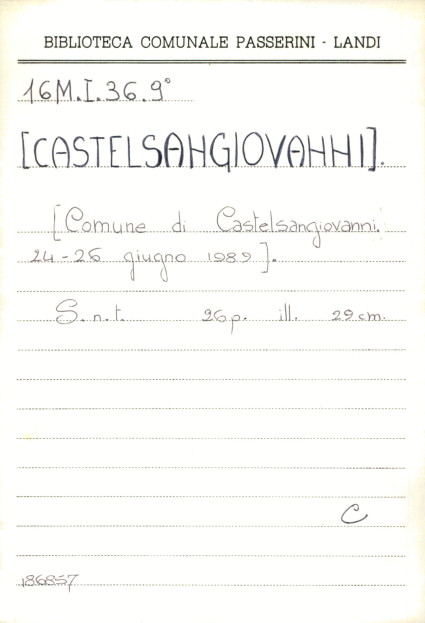 BIBLIOTECA COMUNALE PASSERINI - LANDI
16M.I.36.9°
[CASTELSANGIOVANNI].
[Comune di Castelsangiovanni.
24-26 giugno 1989].
S.n.t. 26p. ill. 29cm.
C
186857